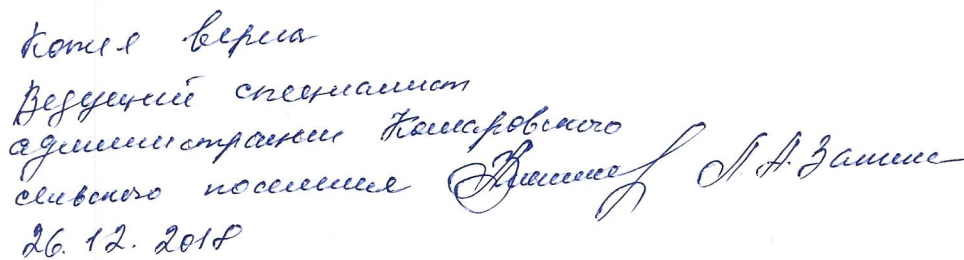 Копия верна
Ведущий специалист
администрации Комаровского
сельского поселения Л.А.
26.12.2018